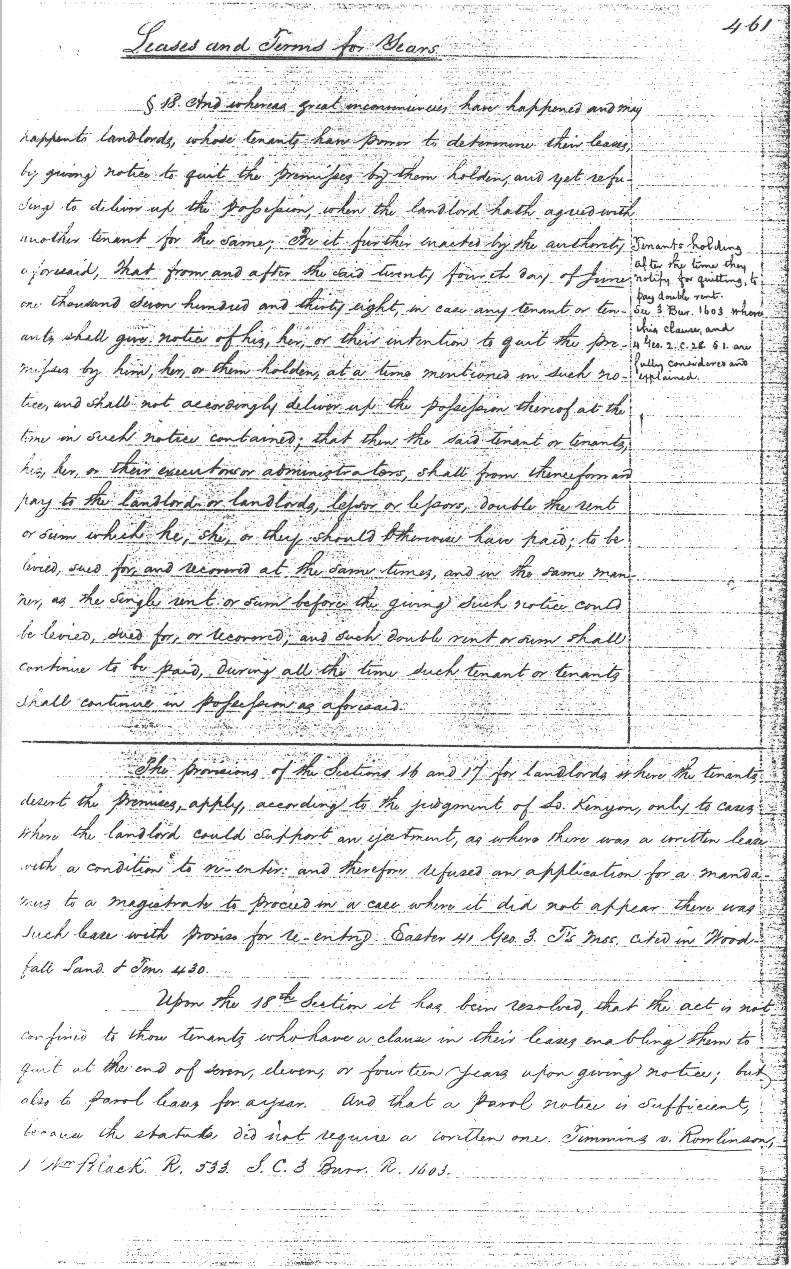 461
Leases and Terms for Years.
§ 18. And whereas great inconveniencies have happened and may
happen to landlords, whose tenants have power to determine their leases,
by giving notice to quit the premisses by them holden, and yet refu-
sing to deliver up the possession, when the landlord hath agreed with
another tenant for the same; Be it further enacted by the authority
aforesaid, That from and after the said twenty fourth day of June
one thousand seven hundred and thirty eight, in case any tenant or ten-
ants shall give notice of his, her, or their intention to quit the pre-
misses by him, her, or them holden, at a time mentioned in such no-
tice, and shall not accordingly deliver up the possession thereof at the
time in such notice contained; that then the said tenant or tenants,
his, her, or their executors or administrators, shall from thenceforward
pay to the landlord or landlords, lessor or lessors, double the rent
or sum which he, she, or they should otherwise have paid; to be
levied, sued for, and recovered at the same times, and in the same man-
ner, as the single rent or sum before the giving such notice could
be levied, sued for, or recovered; and such double rent or sum shall
continue to be paid, during all the time such tenant or tenants
shall continue in possession as aforesaid.
Tenants holding
after the time they
notify for quitting, to
pay double rent.
See 3 Bur. 1603 where
this clause, and
4 Geo. 2. c. 28. § 1. are
fully considered and
explained.
The provisions of the Sections 16 and 17 for landlords where the tenants
desert the premises, apply, according to the judgment of Ld. Kenyon, only to cases
where the landlord could support an ejectment, as where there was a written lease
with a condition to re-enter: and therefore refused an application for a manda-
mus to a magistrate to proceed in a case where it did not appear there was
such lease with proviso for re-entry. Easter 41 Geo. 3. T's Mss. cited in Wood-
fall Land. & Ten. 430.
Upon the 18th Section it has been resolved, that the act is not
confined to those tenants who have a clause in their leases enabling them to
quit at the end of seven, eleven, or fourteen years upon giving notice; but
also to parol leases for a year. And that a parol notice is sufficient,
because the statute did not require a written one. Timmins v. Rowlinson,
1 Wm Black. R. 533. S. C. 3 Burr. R. 1603.